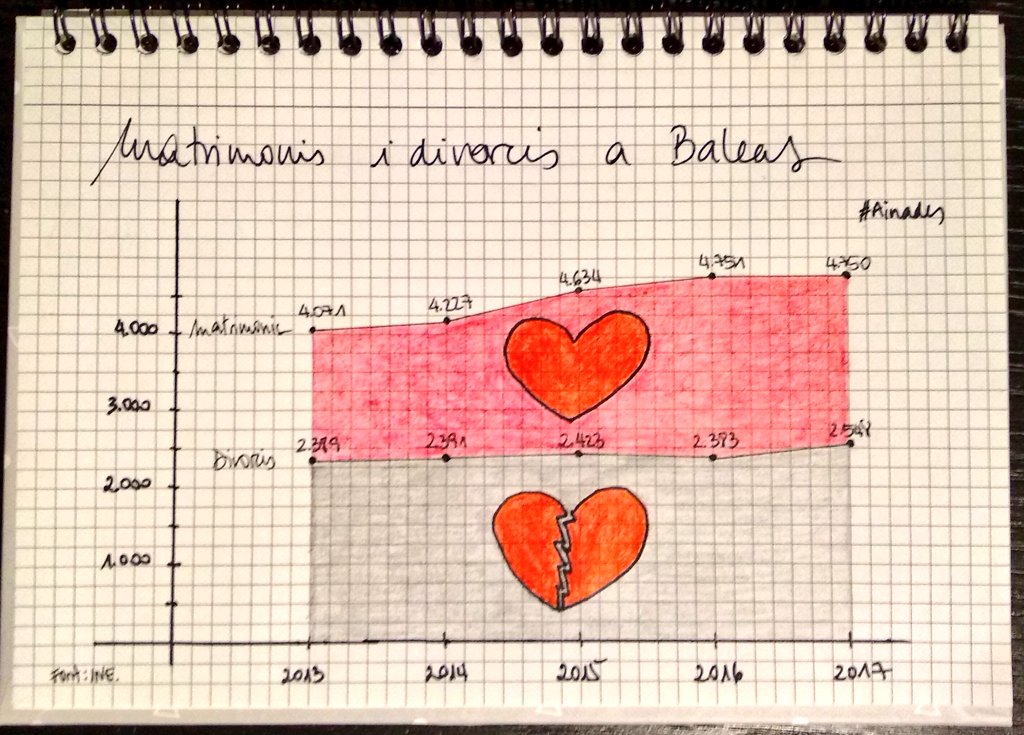 Matrimonis i divorcis a Balears
#Ainades
4.071 4.227 4.634 4.751 4.750
4.000 Matrimonis
3.000
2.391 2.423 2.383
Divorcis
2.000
1.000
Font: INE. 2013 2014 2015 2016 2017